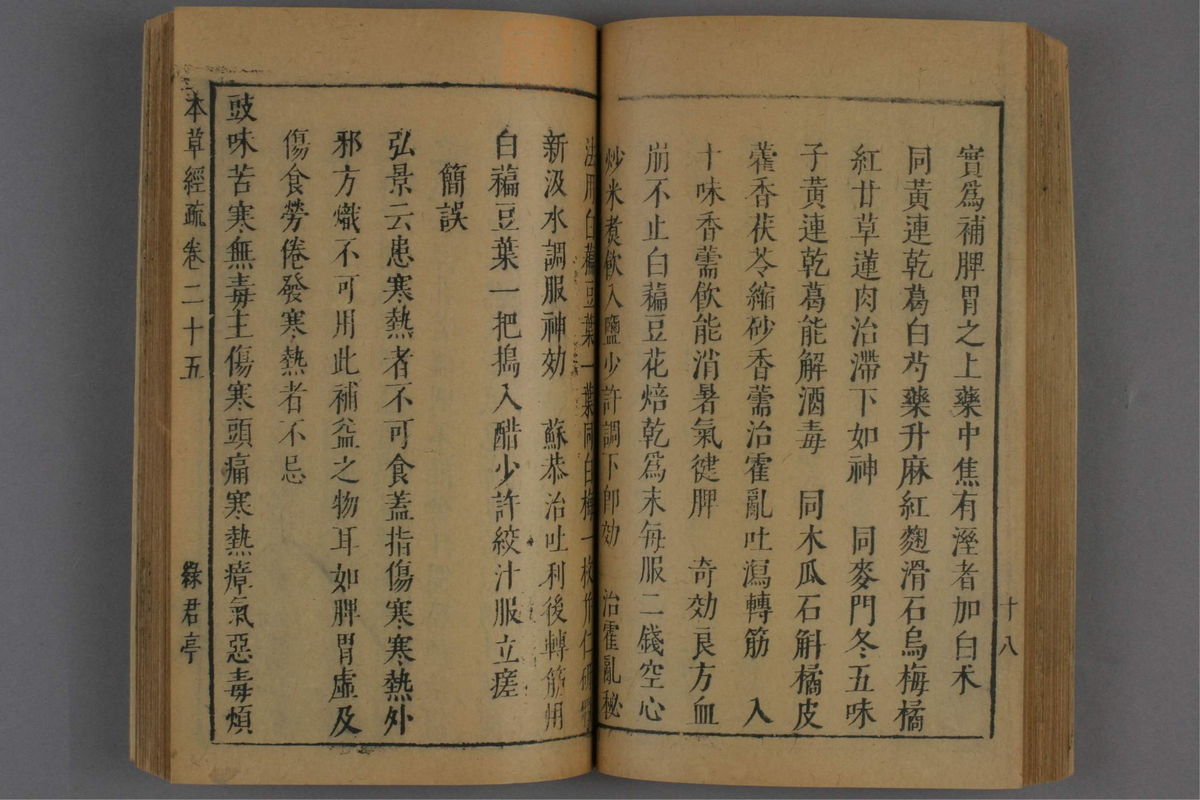 實爲補脾胃之上藥中焦有溼者加白朮
同黃連乾葛白芍藥升麻紅麴滑石烏梅橘
紅甘草蓮肉治滯下如神　同麥門冬五味
子黃連乾葛能解酒毒　同木瓜石斛橘皮
藿香茯苓縮砂香薷治霍亂吐瀉轉筋　入
十味香薷飲能消暑氣健脾　奇効良方血
崩不止白藊豆花焙乾爲末每服二錢空心
炒米煮飲入鹽少許調下卽効　治霍亂秘
法用白藊豆葉一葉同白梅一枚
新汲水調服神効　蘇恭治吐利後轉筋用
白藊豆葉一把搗入醋少許絞汁服立瘥
簡誤
弘景云患寒熱者不可食蓋指傷寒寒熱外
邪方熾不可用此補益之物耳如脾胃虛及
傷食勞倦發寒熱者不忌
豉味苦寒無毒主傷寒頭痛寒熱瘴氣惡毒煩
本草經疏卷二十五　綠君亭
十八